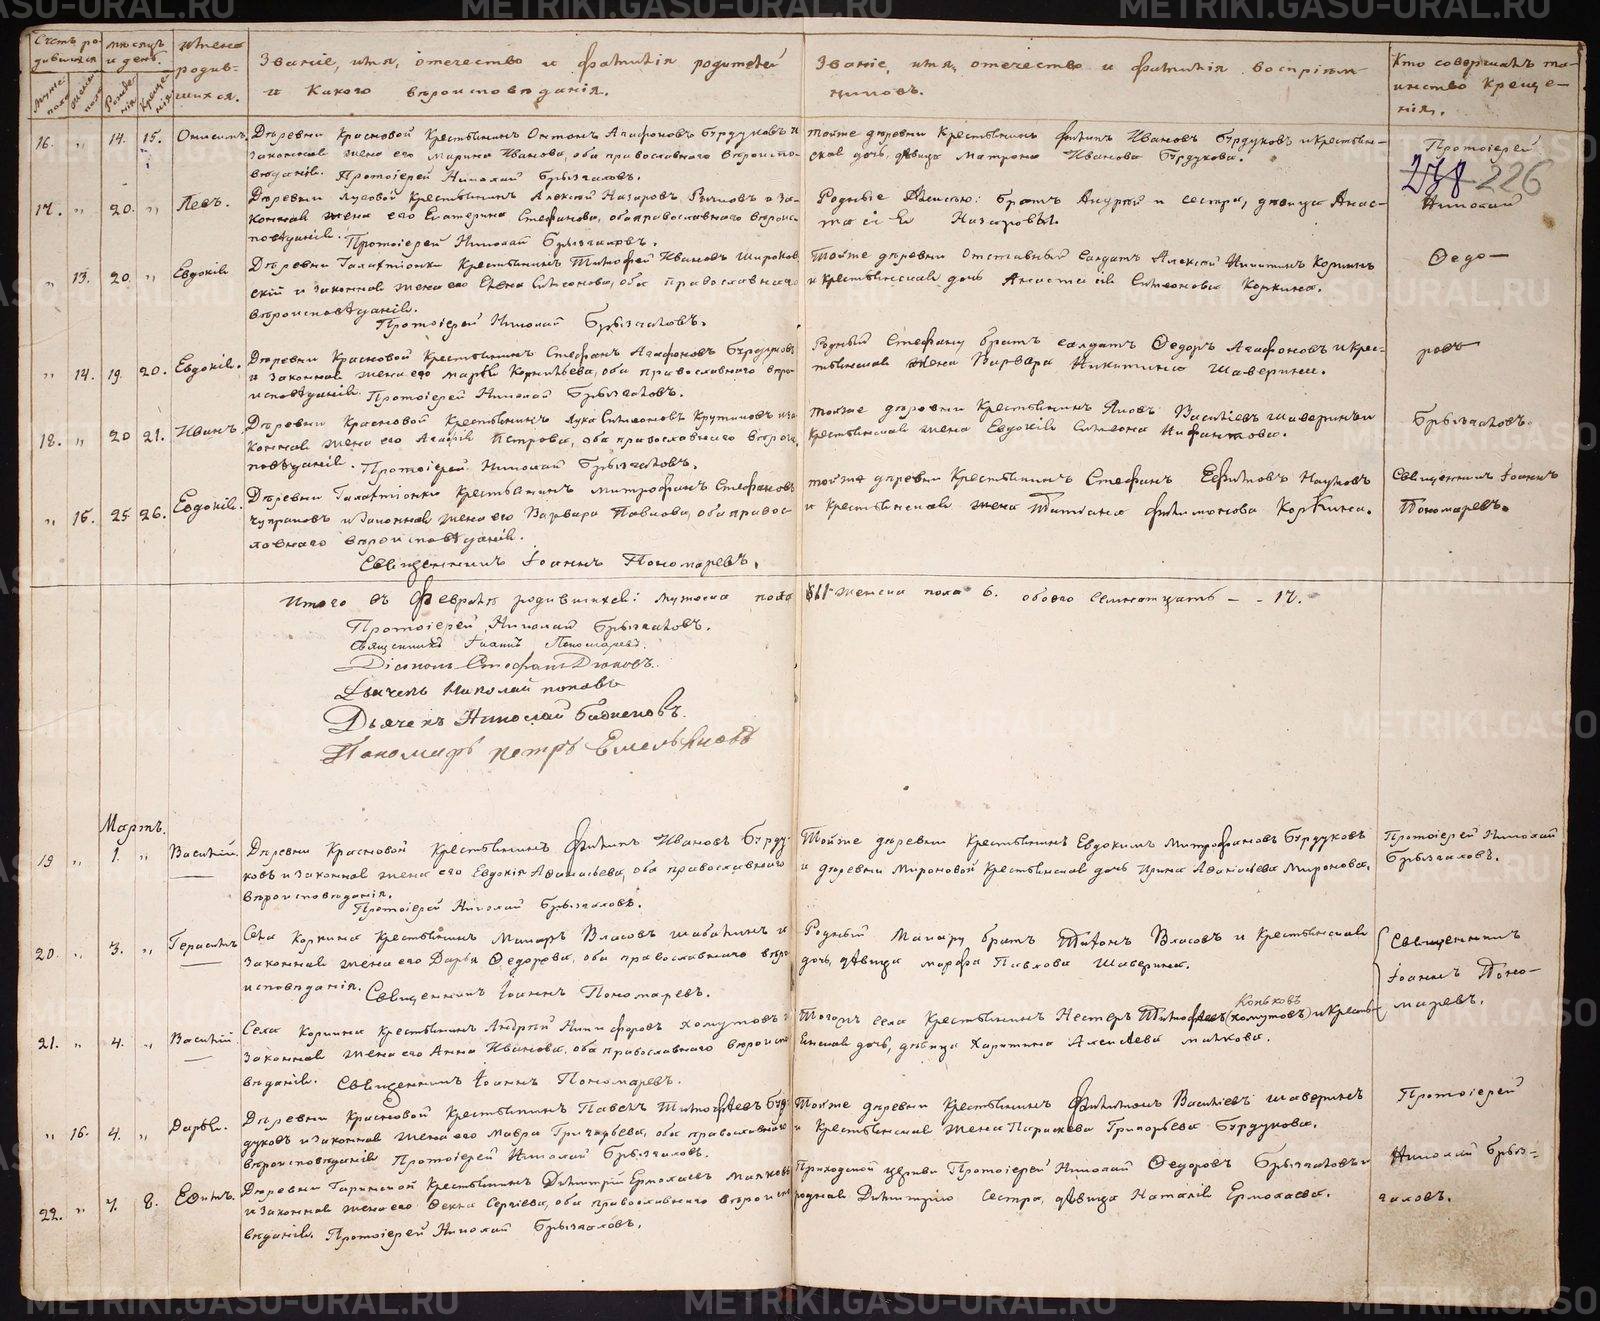 METRIKI.GASU-URAL.RU
Счетъ ро-
дившихся
Мужес: пола
Женск: пола
Мѣсяцъ и день.
Рожде-нія
Креще-нія
Имена
родив-
шихся.
Званіе, имя, отечество и фамилія родителей
и какого вѣроисповѣданія.
Званіе, имя, отечество и фамилія воспріем-
никовъ.
Кто совершалъ та-
инство креще-
нія.
238 226
16. „ 14. 15. Онисимъ.
Деревни Красновой Крестьянинъ Антонъ Агафоновъ Бурдуковъ и
законная жена его Марина Иванова, оба православнаго вѣроиспо-
вѣданія. Протоіерей Николай Брызгаловъ.
тойже деревни Крестьянинъ Филипъ Ивановъ Бурдуковъ и крестьян-
ская дочь, дѣвица Матрона Иванова Бурдукова.
Протоіерей
17. „ 20. „ Левъ.
Деревни Луговой Крестьянинъ Алексѣй Назаровъ и за-
конная жена его Екатерина Стефанова, оба православнаго вѣроис-
повѣданія. Протоіерей Николай Брызгаловъ.
Родные Алексѣю: братъ Андрей и сестра, дѣвица Анас-
тасія Назаровы.
Николай
„ 13. 20. „ Евдокія
Деревни Галактіонки Крестьянинъ Тимофей Ивановъ Широков-
скій и законная жена его Елена Симеонова, оба православнаго
вѣроисповѣданія.
Протоіерей Николай Брызгаловъ.
Тойже деревни отставный солдатъ Алексѣй Никитинъ Коркинъ
и крестьянская дочь Анастасія Симеонова Коркина.
Ѳедо-
„ 14. 19. 20. Евдокія.
Деревни Красновой Крестьянинъ Стефанъ Агафоновъ Бурдуковъ
и законная жена его Марѳа Корнильева, оба православнаго вѣро-
исповѣданія. Протоіерей Николай Брызгаловъ.
Родный Стефану братъ солдатъ Ѳедоръ Агафоновъ и крес-
тьянская жена Варвара Никитина Шаверина.
ровъ
18. „ 20 21. Иванъ.
Деревни Красновой Крестьянинъ Лука Симеоновъ Крутиковъ и за-
конная жена его Агафія Петрова, оба православнаго вѣроис-
повѣданія. Протоіерей Николай Брызгаловъ.
тойже деревни Крестьянинъ Яковъ Васильевъ Шаверинъ и
Крестьянская жена Евдокія Симеонова
Брызгаловъ.
„ 15. 25 26. Евдокія.
Деревни Галактіонки Крестьянинъ Митрофанъ Стефановъ
Чупраковъ и законная жена его Варвара Павлова, оба правос-
лавнаго вѣроисповѣданія.
Священникъ Іоаннъ Пономаревъ.
тойже деревни Крестьянинъ Стефанъ Ефимовъ Наумовъ
и Крестьянская жена Татіана Филимонова Коркина.
Священникъ Іоаннъ
Пономаревъ.
Итого въ Февралѣ родившихся: мужеска пола 11 женска пола 6. обоего семнатцать - - 17.
Протоіерей Николай Брызгаловъ.
Священникъ Іоаннъ Пономаревъ.
Діаконъ Стефанъ Дюковъ.
Дьячекъ Николай Поповъ
Дьячекъ Николай
Пономарь Петръ Емельяновъ
Мартъ.
19 „ 1. „ Василій.
Деревни Красновой Крестьянинъ Филипъ Ивановъ Бурду-
ковъ и законная жена его Евдокія Аѳанасьева, оба православнаго
вѣроисповѣданія.
Протоіерей Николай Брызгаловъ.
Тойже деревни Крестьянинъ Евдокимъ Митрофановъ Бурдуковъ
и деревни Мироновой Крестьянская дочь Ирина Аѳанасьева Миронова.
Протоіерей Николай
Брызгаловъ.
20. „ 3. „ Герасимъ
Села Коркина Крестьянинъ Макаръ Власовъ Шабалинъ и
законная жена его Дарья Ѳедорова, оба православнаго вѣро-
исповѣданія. Священникъ Іоаннъ Пономаревъ.
Родный Макару братъ Титонъ Власовъ и Крестьянская
дочь, дѣвица Марфа Павлова Шаверина.
Священникъ
Іоаннъ Поно-
маревъ.
21. „ 4. „ Василій.
Села Коркина Крестьянинъ Андрей Никифоровъ Хомутовъ и
законная жена его Анна Иванова, оба православнаго вѣроиспо-
вѣданія. Священникъ Іоаннъ Пономаревъ.
Коньковъ
Тогожъ села Крестьянинъ Нестеръ Тимофеевъ (Хомутовъ) и крестья-
нская дочь, дѣвица Харитина Алексѣева Малкова.
„ 16. 4. „ Дарья.
Деревни Красновой Крестьянинъ Павелъ Тимофеевъ Бур-
дуковъ и законная жена его Мавра Григорьева, оба православнаго
вѣроисповѣданія Протоіерей Николай Брызгаловъ.
Тойже деревни Крестьянинъ Филимонъ Васильевъ Шаверинъ
и Крестьянская жена Параскева Григорьева Бурдукова.
Протоіерей
22. „ 7. 8. Ефимъ.
Деревни Гаринской Крестьянинъ Димитрій Ермолаевъ Малковъ
и законная жена его Ѳекла Сергѣева, оба православнаго вѣроиспо-
вѣданія. Протоіерей Николай Брызгаловъ.
Приходской церкви Протоіерей Николай Ѳедоровъ Брызгаловъ и
родная Димитрію сестра, дѣвица Наталія Ермолаева.
Николай Брыз-
галовъ.